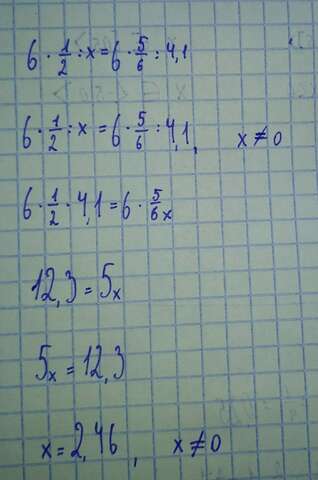 6 · 1/2 : x = 6 · 5/6 : 4,1
6 · 1/2 : x = 6 · 5/6 : 4,1, x ≠ 0
6 · 1/2 · 4,1 = 6 · 5/6 x
12,3 = 5x
5x = 12,3
x = 2,46, x ≠ 0